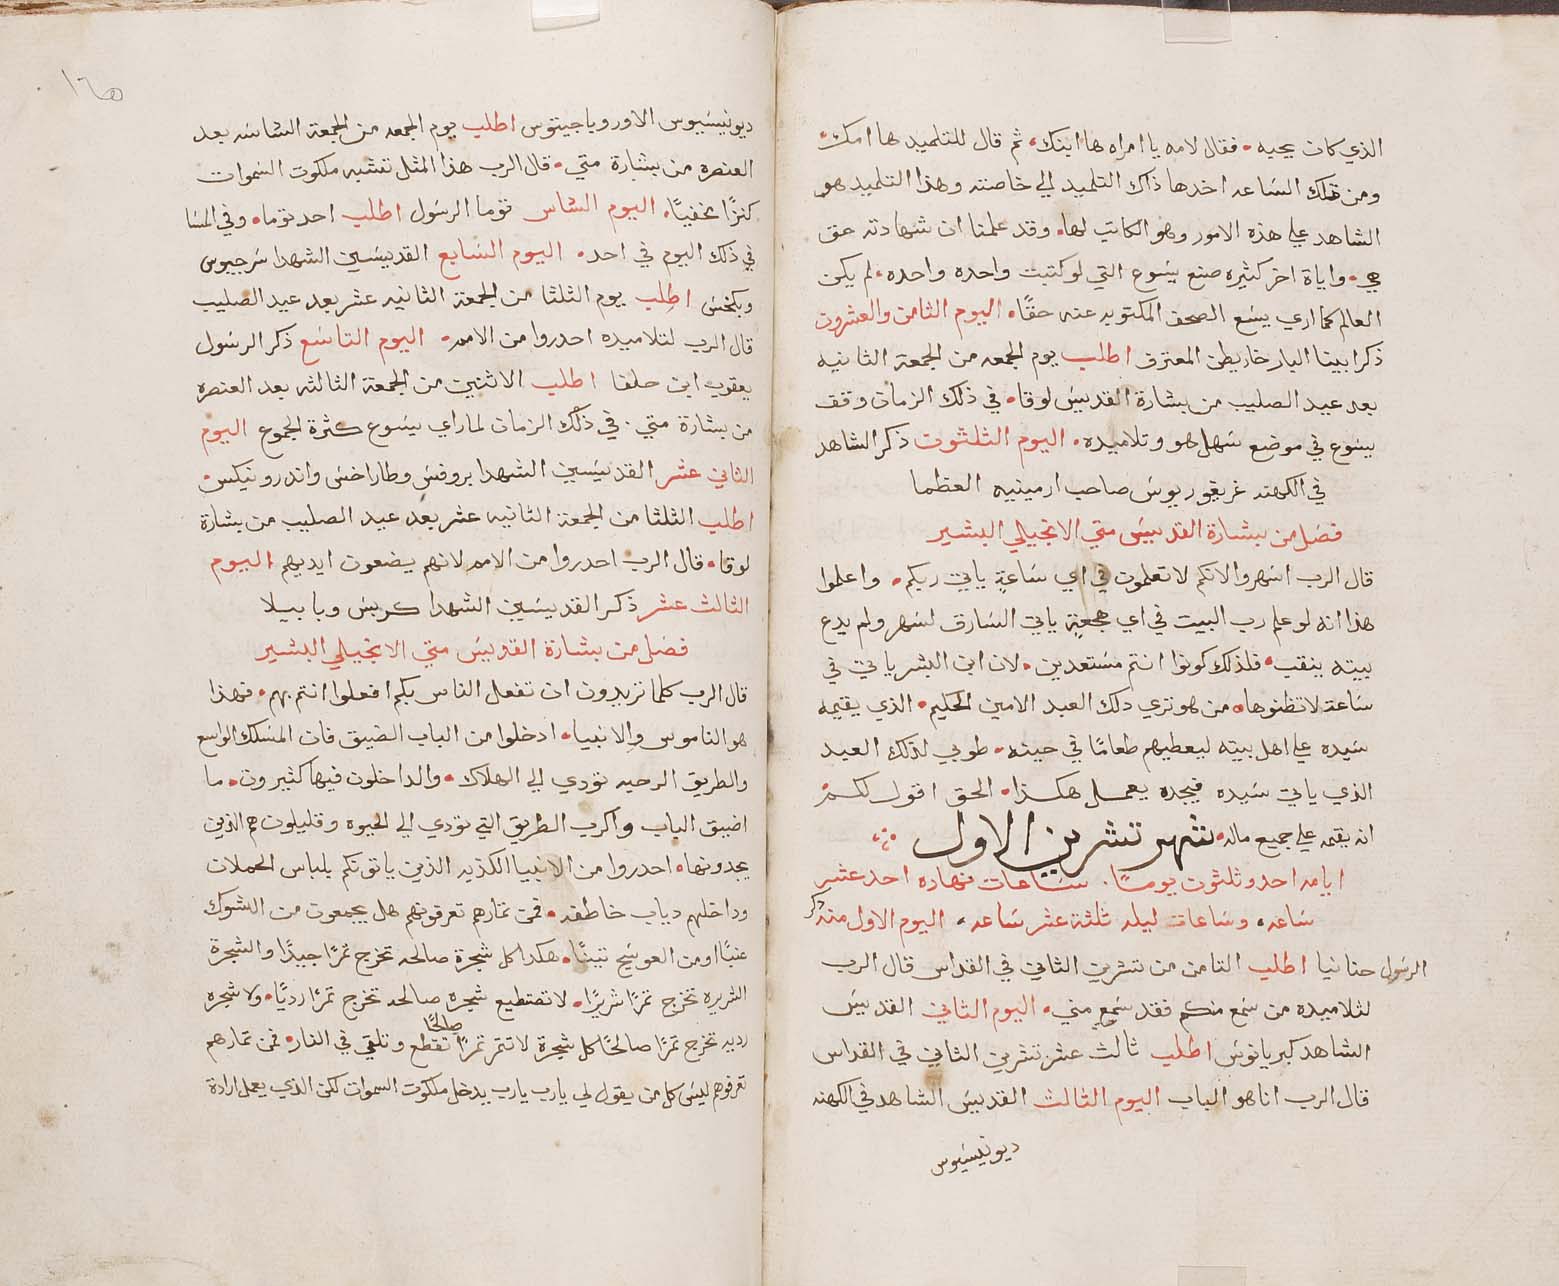 الذي كان يحبه • فقال لامه يا امراه ها ابنك، ثم قال للتلميد ها امك،
ومن تلك الساعه اخدها ذاك التلميد الي خاصته وهذا التلميد هو
الشاهد علي هذه الامور وهو الكاتب لها • وقد علمنا ان شهادته حق
هي • واياة اخر كثيره صنع يسوع التي لو كتبت واحده واحده، لم يكن
العالم كما اري يسع الصحف المكتوبه عنه حقًا • اليوم الثامن والعشرون
ذكر ابينا البار خاريطن المعترف اطلب يوم الجمعه من الجمعة الثانيه
بعد عيد الصليب من بشارة القديس لوقا • في ذلك الزمان وقف
يسوع في موضع سهل هو وتلاميده • اليوم الثلثون ذكر الشاهد
في الكهنه غريغوريوس صاحب ارمينيه العظما
فصل من بشارة القديس متي الانجيلي البشير
قال الرب اسهروا لانكم لا تعلمون في اي ساعةٍ ياتي ربكم • واعلموا
هذا انه لو علم رب البيت في اي هجعةٍ ياتي السارق لسهر ولم يدع
بيته ينقب • فلذلك كونوا انتم مستعدين • لان ابن البشر ياتي في
ساعة لا تظنوها • من هو تري دلك العبد الامين الحكيم • الذي يقيمه
سيده علي اهل بيته ليعطيهم طعامًا في حينه • طوبي لذلك العبد
الذي ياتي سيده فيجده يعمل هكذا • الحق اقول لكم
انه يقيمه علي جميع ماله • شهر تشرين الاول
ايامه احد وثلثون يومًا • ساعات نهاره احد عشر
ساعه، وساعات ليله ثلثة عشر ساعه، اليوم الاول منه ذكر
الرسول حنانيا اطلب الثامن من تشرين الثاني في القداس قال الرب
لتلاميده من سمع منكم فقد سمع مني • اليوم الثاني القديس
الشاهد كبريانوس اطلب ثالث عشر تشرين الثاني في القداس
قال الرب انا هو الباب اليوم الثالث القديس الشاهد في الكهنه
ديونيسيوس
١٦٥
ديونيسيوس الاوروباجيتوس اطلب يوم الجمعه من الجمعة السادسه بعد
العنصره من بشارة متي • قال الرب هذا المثل تشبه ملكوت السموات
كنزًا مخفيًا • اليوم السادس توما الرسول اطلب احد توما • وفي المسا
في ذلك اليوم في احد • اليوم السابع القديسين الشهدا سرجيوس
وبكخس اطلب يوم الثلثا من الجمعة الثانيه عشر بعد عيد الصليب
قال الرب لتلاميده احدروا من الامم • اليوم التاسع ذكر الرسول
يعقوب ابن حلفا اطلب الاثنين من الجمعة الثالثه بعد العنصره
من بشارة متي • في ذلك الزمان لما راي يسوع كثرة الجموع اليوم
الثاني عشر القديسين الشهدا بروفس وطاراخس واندرونيكس
اطلب الثلثا من الجمعة الثانيه عشر بعد عيد الصليب من بشارة
لوقا • قال الرب احدروا من الامم لانهم يضعون ايديهم اليوم
الثالث عشر ذكر القديسين الشهدا كربس وبابيلا
فصل من بشارة القديس متي الانجيلي البشير
قال الرب كلما تريدون ان تفعل الناس بكم افعلوا انتم بهم • فهذا
هو الناموس والانبيا • ادخلوا من الباب الضيق فان المسلك الواسع
والطريق الرحبه تودي الي الهلاك • والداخلون فيها كثيرون • ما
اضيق الباب واكرب الطريق التي تودي الي الحيوه وقليلون هم الذين
يجدونها • احدروا من الانبيا الكذبه الذين ياتونكم بلباس الحملات
وداخلهم دياب خاطفه • فمن ثمارهم تعرفونهم هل يجمعون من الشوك
عنبًا او من العوسج تينًا • هكدا كل شجرة صالحه تخرج ثمرًا جيدًا والشجرة
الشريره تخرج ثمرًا شريرًا • لا تستطيع شجره صالحه تخرج ثمرًا رديًا • ولا شجره
رديه تخرج ثمرًا صالحًا كل شجرة لا تثمر ثمرًا صالحًا تقطع وتلقي في النار • فمن ثمارهم
تعرفوهم ليس كل من يقول لي يارب يارب يدخل ملكوت السموات لكن الذي يعمل ارادة